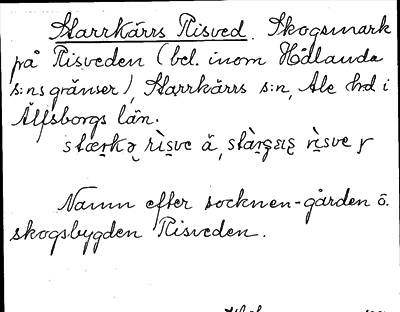 Starrkärrs Risved. Skogsmark
på Risveden (bel. inom Hålanda
s:ns gränser), Starrkärrs s:n, Ale hd i
Älfsborgs län.
Namn efter socknen-gården o.
skogsbygden Risveden.